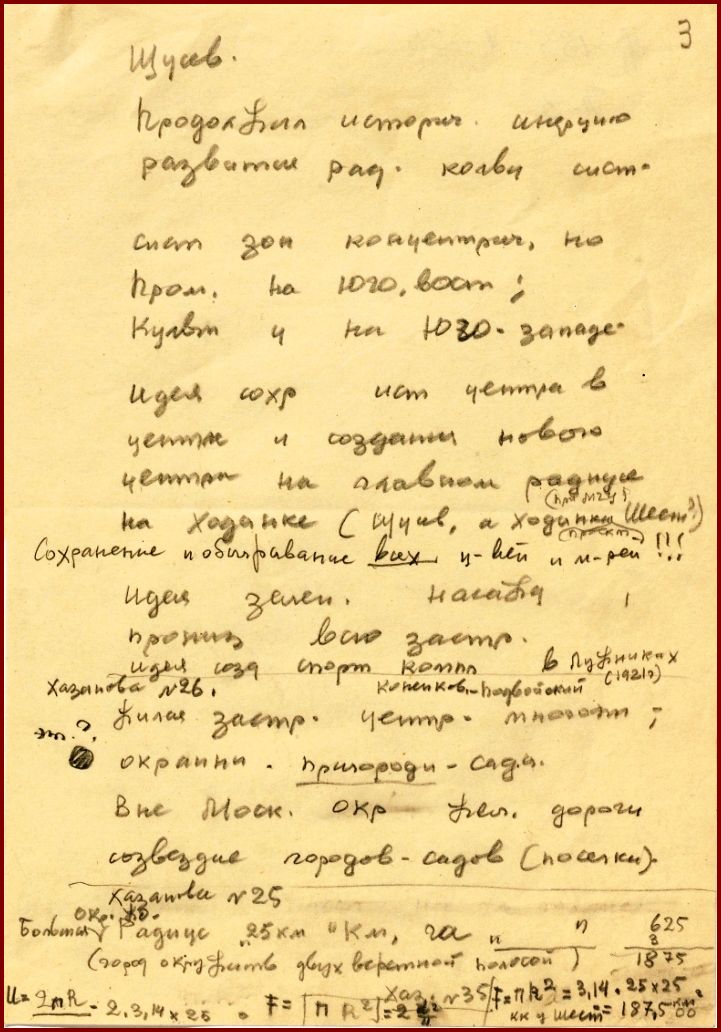 3
Щусев.
Продолжил историч. инерцию
развития рад. колвц сист.
сист зон концентрич, но
Пром. на юго, вост;
Культ ц на Юго-западе.
Идея сохр ист центра в
центре и создания нового
центра на главном радиусе
на Ходынке (Щусев, а Ходынка Шест?)
Сохранение и обыгрывание всех ц-вей и м-рей !!!
Идея зелен. насажд ,
прониз всю застр.
идея созд спорт компл в Лужниках
Хазанова №26. Коненков-Подвойский (1921г)
Жилая застр. центр. многоэт;
эт.
окраинн. Пригороди-сада.
Вне Моск. окр жел. дороги
созвездие городов-садов (поселки).
Хазанова №25
окр.
Большая Радиус "25км" Км, га " " 625
3
(город окружить двух верстной полосой) 1875
Хаз. №35
2πR = 2.3,14×25 . F= πR²
F=πR²=3,14.25×25
кк у Шест = 187,5 км²